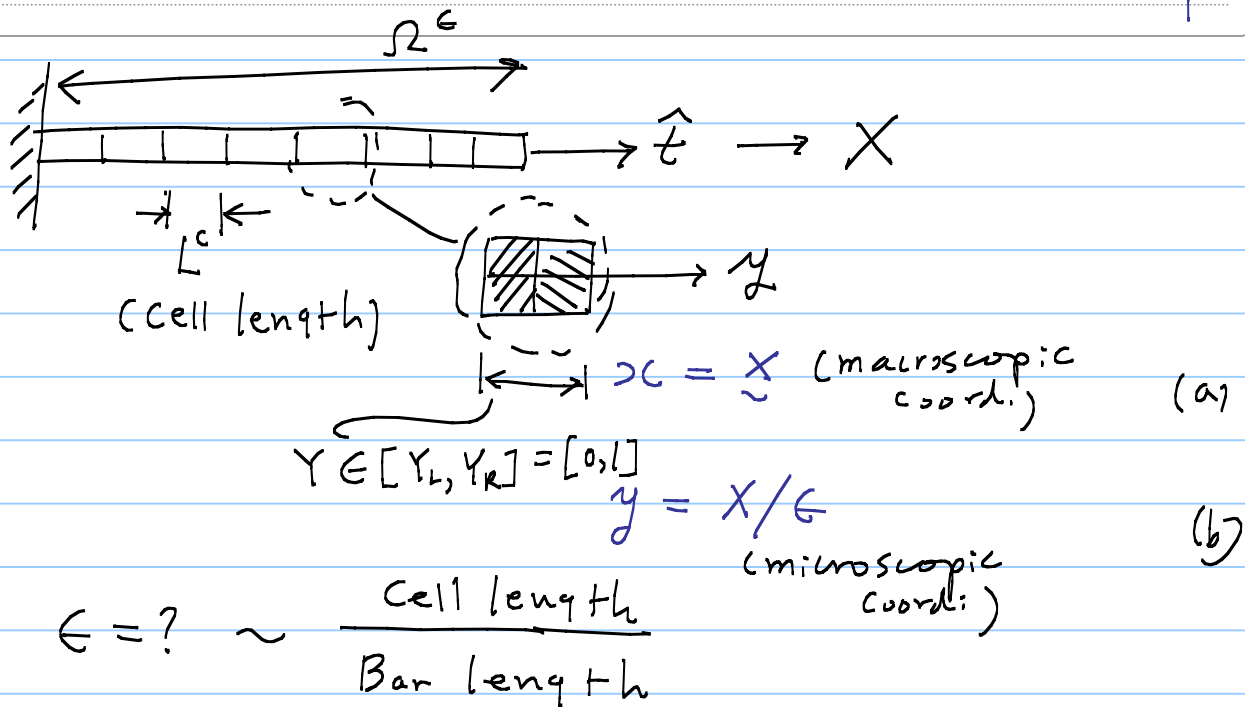 Ω^ε
t̂ → X
L^c
(Cell length)
y
x = X (macroscopic coordi.) (a)
Y ∈ [Y_L, Y_R] = [0,1]
y = X/ε (b)
(microscopic coordi.)
ε = ? ~ Cell length
Bar length